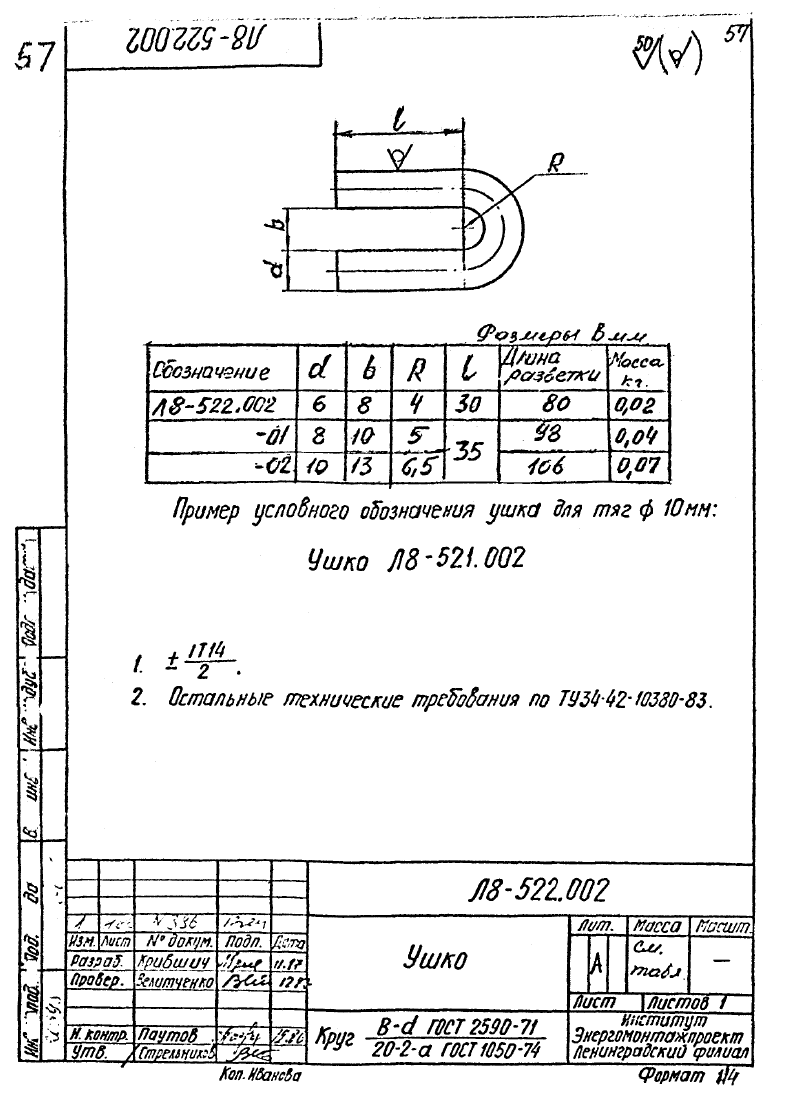 57
Л8-522.002
50
57
l
R
b
d
Размеры в мм
Обозначение d b R l Длина разветки Масса кг.
Л8-522.002 6 8 4 30 80 0,02
-01 8 10 5 35 98 0,04
-02 10 13 6,5 106 0,07
Пример условного обозначения ушка для тяг ф 10мм:
Ушко Л8-521.002
1. ± IT14/2.
2. Остальные технические требования по ТУ34-42-10380-83.
Л8-522.002
1 N 336
Изм. Лист N° докум. Подп. Дата
Разраб. Крившич 11.87
Провер. Зелитченко
Н. контр. Паутов
Утв. Стрельников
Ушко
Лит. Масса Масшт.
А см. табл. —
Лист Листов 1
Круг В-d ГОСТ 2590-71
20-2-а ГОСТ 1050-74
Институт
Энергомонтажпроект
Ленинградский филиал
Коп. Иванова
Формат А4